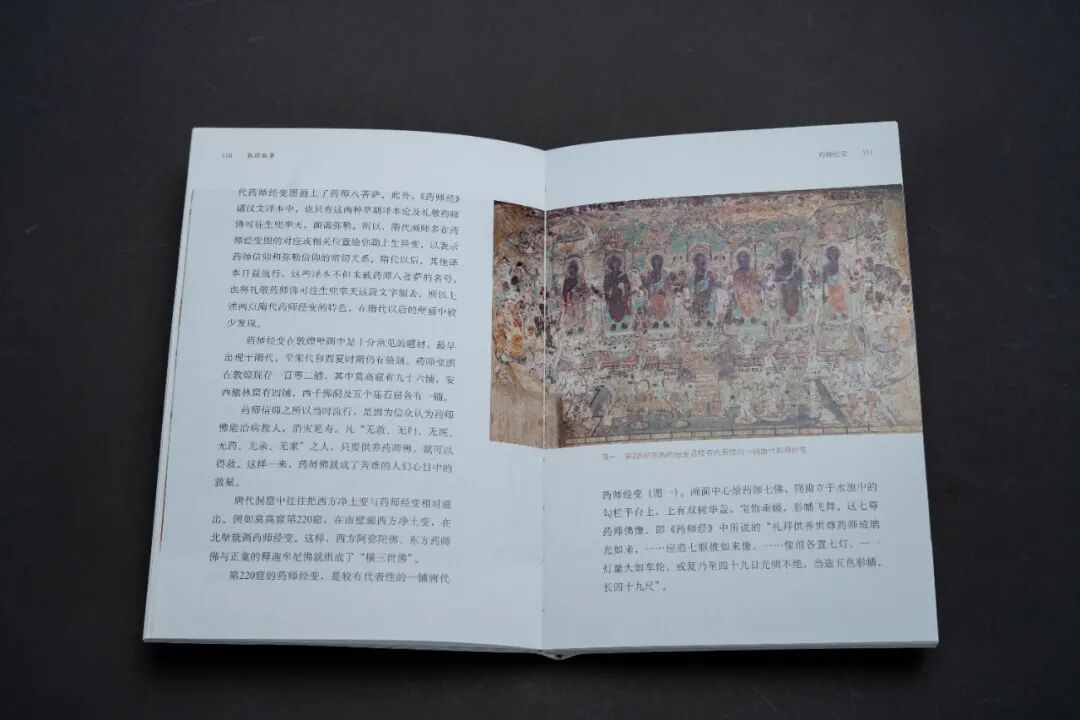 110 敦煌故事
代药师经变图画上了药师八菩萨。此外,《药师经》
诸汉文译本中,也只有这两种早期译本论及礼敬药师
佛可往生兜率天,面谒弥勒。所以,隋代画师多在药
师经变图的对应或相关位置绘弥勒上生经变,以表示
药师信仰和弥勒信仰的密切关系。隋代以后,其他译
本日益流行,这些译本不但未载药师八菩萨的名号,
也将礼敬药师佛可往生兜率天这段文字删去。所以上
述两点隋代药师经变的特色,在隋代以后的壁画中较
少发现。
药师经变在敦煌壁画中是十分常见的题材,最早
出现于隋代,至宋代和西夏时期仍有绘制。药师变图
在敦煌现存一百零二铺,其中莫高窟有九十六铺,安
西榆林窟有四铺,西千佛洞及五个庙石窟各有一铺。
药师信仰之所以当时流行,是因为信众认为药师
佛能治病救人,消灾延寿。凡“无救、无归、无医、
无药、无亲、无家”之人,只要供养药师佛,就可以
得救。这样一来,药师佛就成了苦难的人们心目中的
救星。
唐代洞窟中往往把西方净土变与药师经变相对画
出。例如莫高窟第220窟,在南壁画西方净土变,在
北壁就画药师经变。这样,西方阿弥陀佛、东方药师
佛与正龛的释迦牟尼佛就组成了“横三世佛”。
第220窟的药师经变,是较有代表性的一铺唐代
药师经变 111
图一 第220窟的药师经变是较有代表性的一铺唐代药师经变
药师经变(图一)。画面中心绘药师七佛,同排立于水池中的
勾栏平台上,上有双树华盖,宝饰垂幔,彩幡飞舞。这七尊
药师佛像,即《药师经》中所说的“礼拜供养世尊药师琉璃
光如来,……应造七躯彼如来像,……像前各置七灯,一一
灯量大如车轮,或复乃至四十九日光明不绝,当造五色彩幡,
长四十九尺”。